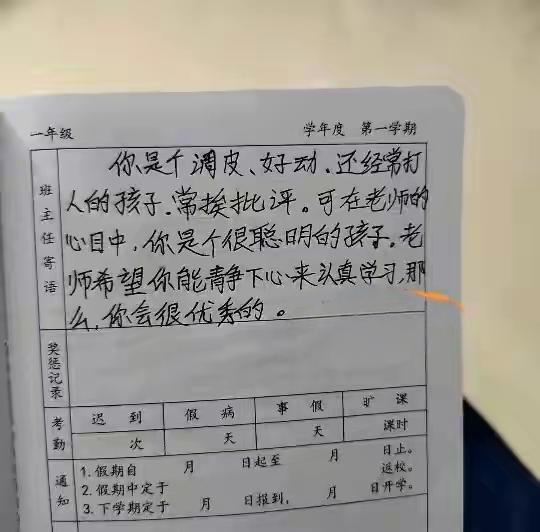 一年级 学年度 第一学期
班主任寄语
你是个调皮、好动、还经常打
人的孩子.常挨批评。可在老师的
心目中,你是个很聪明的孩子.老
师希望你能静下心来认真学习,那
么,你会很优秀的。
奖惩记录
考勤 迟到 假病 事假 旷课
次 天 天 课时
通知
1.假期自 月 日起至 月 日止。
2.假期中定于 返校。
3.下学期定于 月 日报到, 月 日开学。